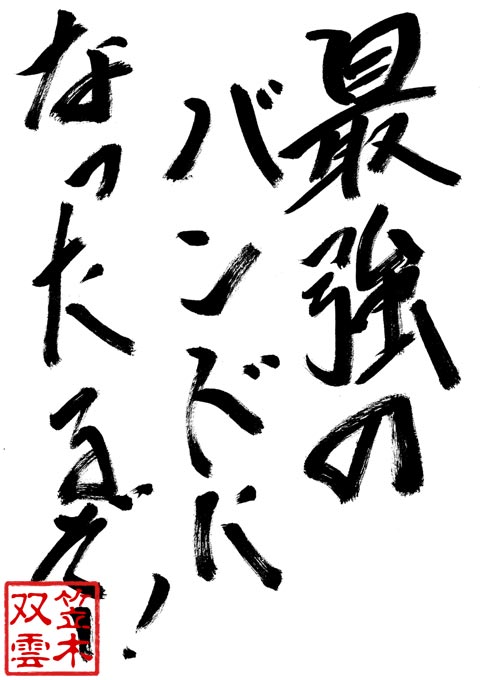 最強の
バンドに
なったるぞ!
笠木
双雲